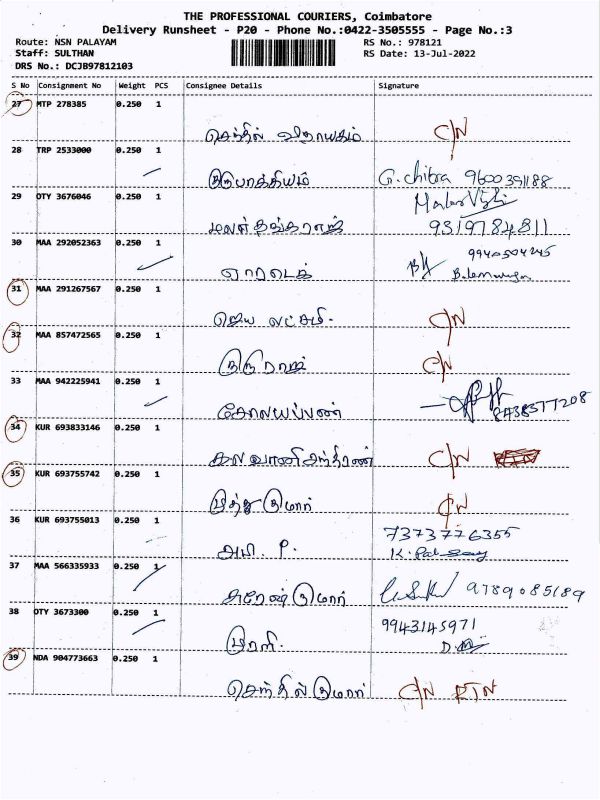 THE PROFESSIONAL COURIERS, Coimbatore
Delivery Runsheet - P20 - Phone No.:0422-3505555 - Page No.:3
Route: NSN PALAYAM RS No.: 978121
Staff: SULTHAN RS Date: 13-Jul-2022
DRS No.: DCJB97812103
S No Consignment No Weight PCS Consignee Details Signature
27 MTP 278385 0.250 1
செந்தில் விநாயகம் C/N
28 TRP 2533000 0.250 1
திருபாக்கியம் G. chitra 9600391188
29 OTY 3676046 0.250 1
மலள் தங்கராஜ் 9319784811
30 MAA 292052363 0.250 1
9940504245
31 MAA 291267567 0.250 1
ஜெய லட்சுமி. C/N
32 MAA 857472565 0.250 1
திருராஜ் C/N
33 MAA 942225941 0.250 1
கோலயப்பன் 8438377208
34 KUR 693833146 0.250 1
கலவாணி சந்திரன் C/N
35 KUR 693755742 0.250 1
முத்துகுமார் C/N
36 KUR 693755013 0.250 1
7373776355
அபி. P.
37 MAA 566335933 0.250 1
சுரேஷ்குமார் 9789085189
38 OTY 3673300 0.250 1
9943145971
முரளி.
39 NDA 904773663 0.250 1
செந்தில்குமார் C/N RTN